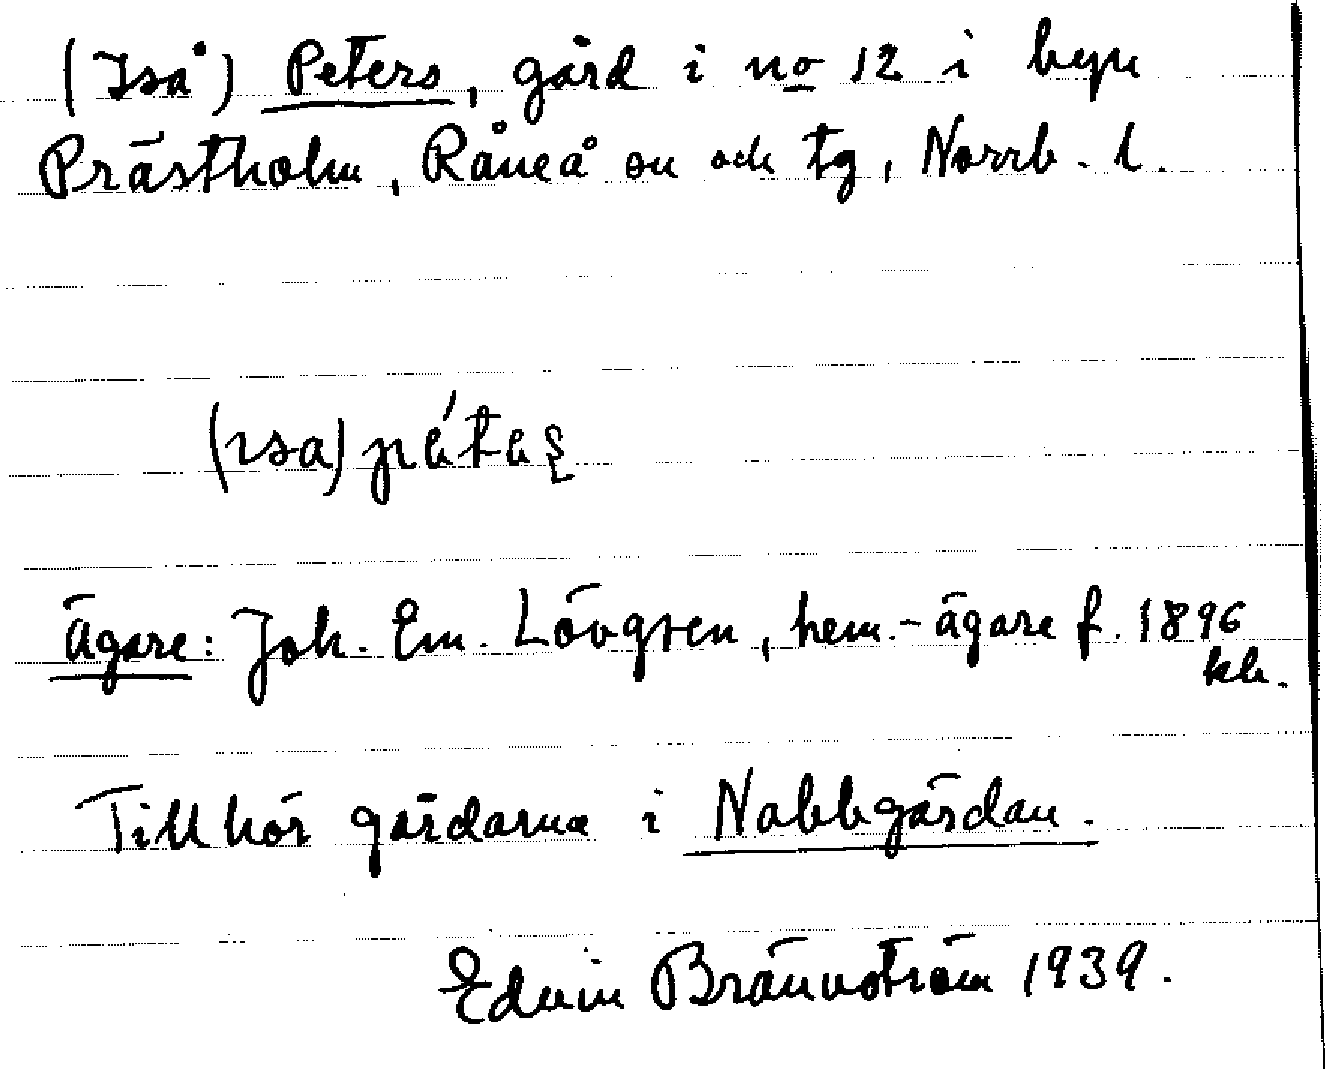 (Iså) Peters, gård i no 12 i byn
Prästholm, Råneå sn och tg, Norrb. l.
(ɩsa) pétəʂ
Ägare: Joh. Em. Lövgren, hem.-ägare f. 1896
kb.
Tillhör gårdarna i Nabbgärdan.
Edvin Brännström 1939.